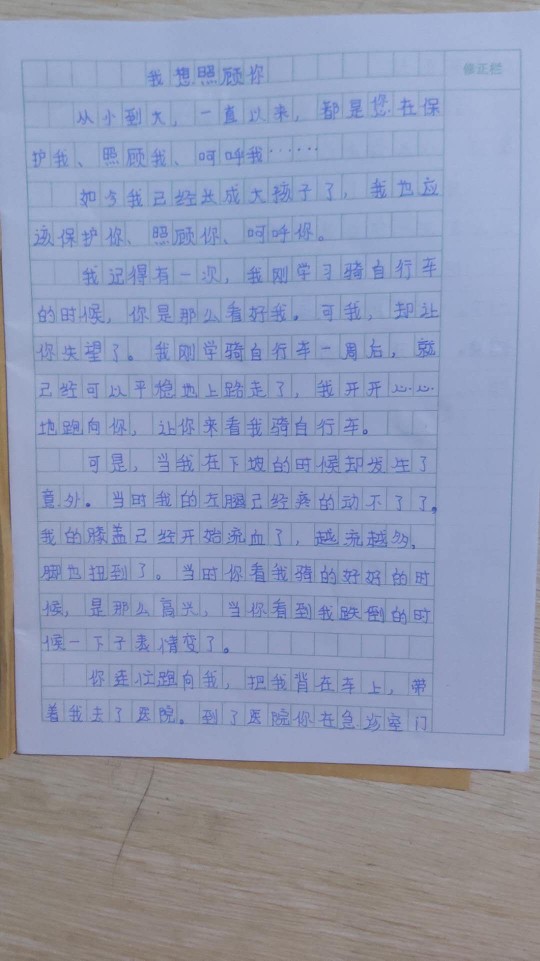 我想照顾你
修正栏
从小到大，一直以来，都是您在保
护我、照顾我、呵呼我……
如今我已经长成大孩子了，我也应
该保护你、照顾你、呵呼你。
我记得有一次，我刚学习骑自行车
的时候，你是那么看好我。可我，却让
你失望了。我刚学骑自行车一周后，就
已经可以平稳地上路走了，我开开心心
地跑向你，让你来看我骑自行车。
可是，当我在下坡的时候却发生了
意外。当时我的左腿已经疼的动不了了。
我的膝盖已经开始流血了，越流越多，
脚也扭到了。当时你看我骑的好好的时
候，是那么高兴，当你看到我跌倒的时
候一下子表情变了。
你连忙跑向我，把我背在车上，带
着我去了医院。到了医院你在急诊室门